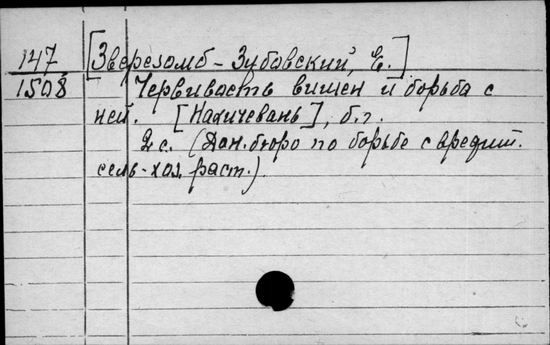 147 [Зверезомб-Зубовский, Е.]
1508 Червивость вишен и борьба с
ней. [Нахичевань], б.г.
2 с. (Дон. бюро по борьбе с вредит.
сель-хоз. раст.).